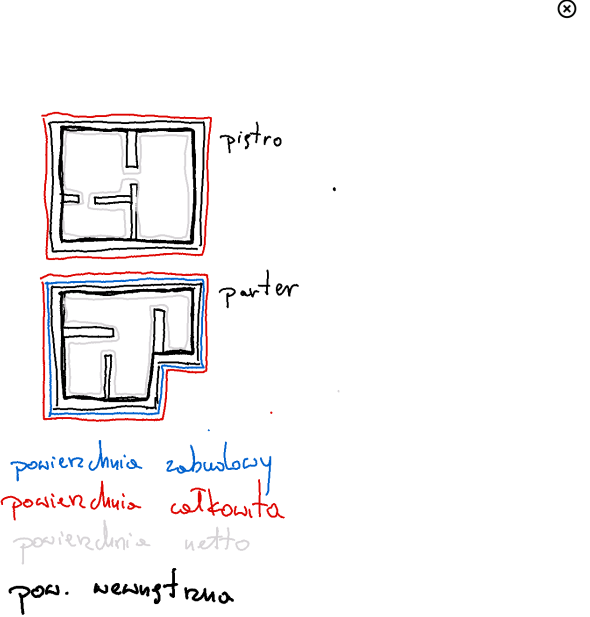 piętro
parter
powierzchnia zabudowy
powierzchnia całkowita
powierzchnia netto
pow. wewnętrzna